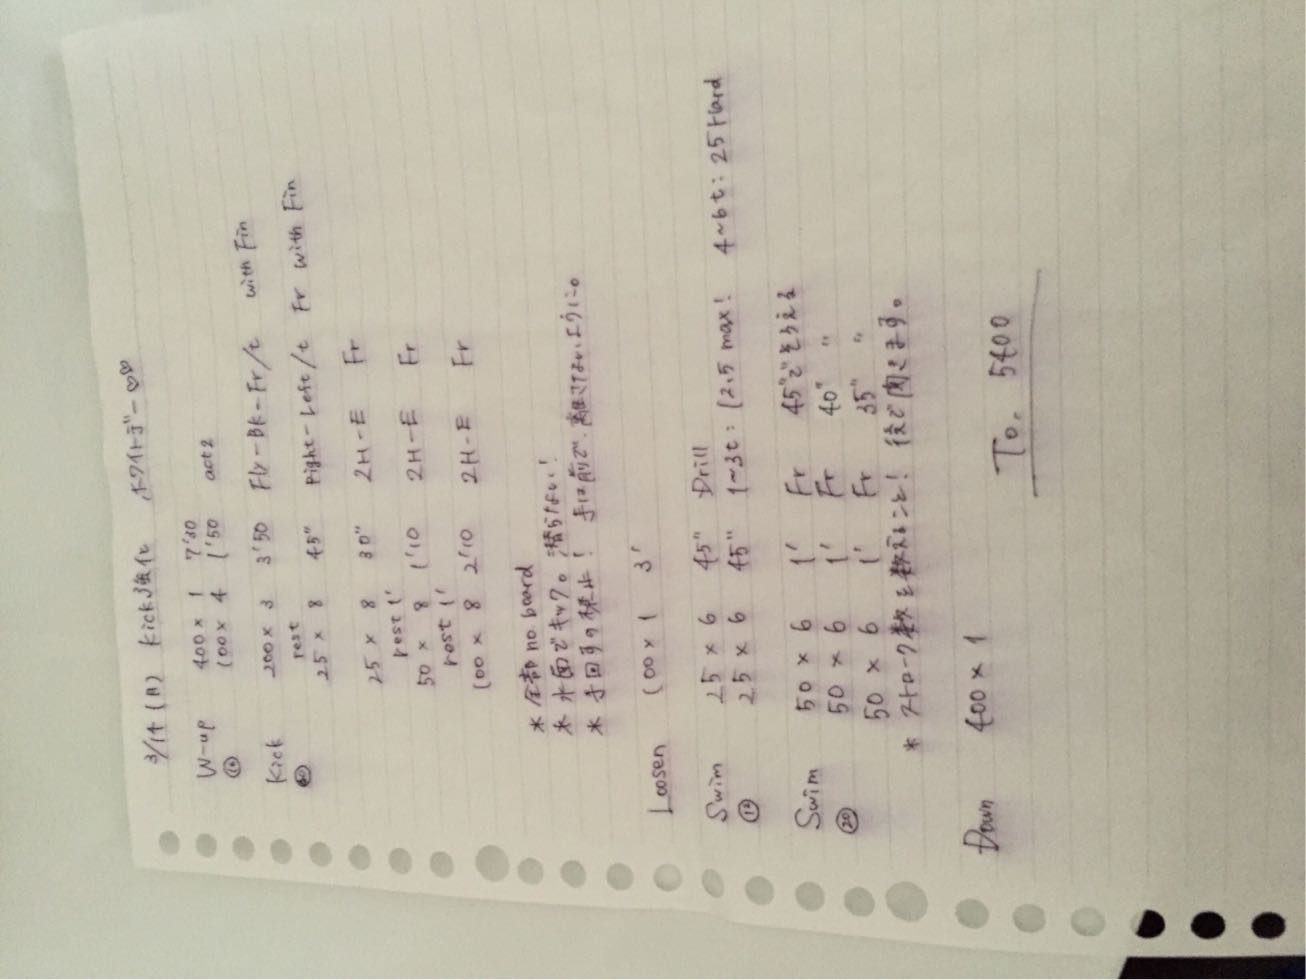 3/14 (日) Kick強化 ホワイトデー♡♡
W-up 400 × 1 7'30
100 × 4 1'50 act2
Kick 200 × 3 3'50 Fly-Bk-Fr/t with Fin
rest
25 × 8 45" Right-Left/t Fr with Fin
25 × 8 30" 2H-E Fr
rest 1'
50 × 8 1'10 2H-E Fr
rest 1'
100 × 8 2'10 2H-E Fr
* 全部 no board
* 水面でキック。潜らない!
* 手回すの禁止! 手は前で、離さないように。
Loosen 100 × 1 3'
Swim 25 × 6 45" Drill
25 × 6 45" 1~3t: 12.5 max! 4~6t: 25 Hard
Swim 50 × 6 1' Fr 45"でそろえる
⑳ 50 × 6 1' Fr 40" "
50 × 6 1' Fr 35" "
* ストローク数を数えること! 後で聞きます。
Down 400 × 1
To. 5400